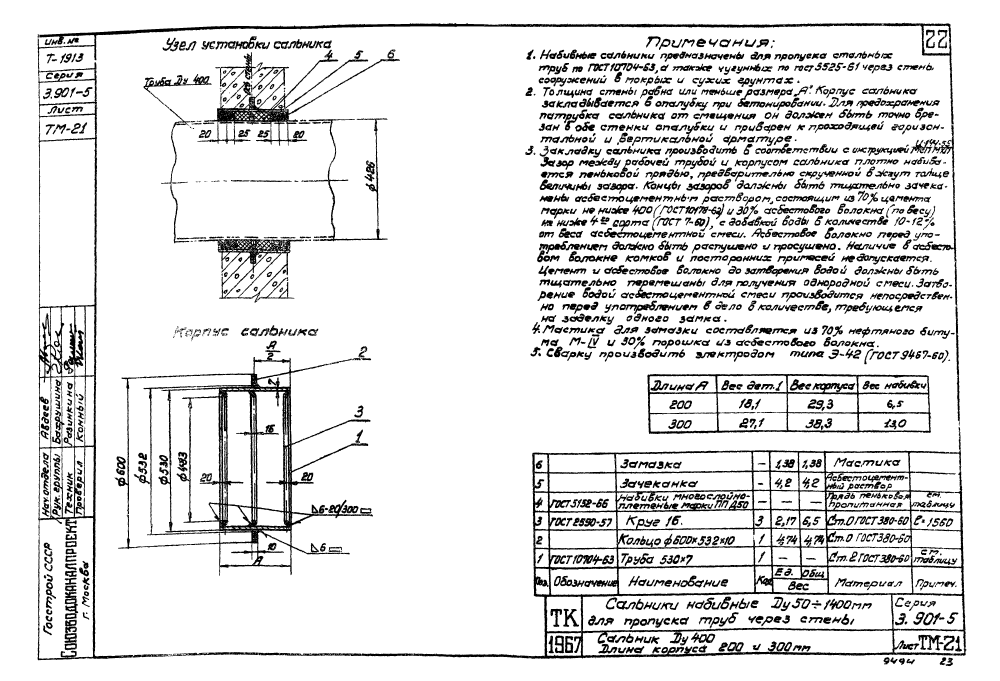 Инв. №
Т-1913
Серия
3.901-5
Лист
ТМ-21
Узел установки сальника
4
5
6
Труба Ду 400
20
25
25
20
ф426
Корпус сальника
А
2
2
3
1
16
ф600
ф532
ф530
ф493
20
20
6-20/300
6
10
А
22
Примечания:
1. Набивные сальники предназначены для пропуска стальных
труб по ГОСТ10704-63, а также чугунных по гост5525-61 через стены
сооружений в мокрых и сухих грунтах.
2. Толщина стены равна или меньше размера „А". Корпус сальника
закладывается в опалубку при бетонировании. Для предохранения
патрубка сальника от смещения он должен быть точно вре-
зан в обе стенки опалубки и приварен к проходящей горизон-
тальной и вертикальной арматуре.
3. Закладку сальника производить в соответствии с инструкцией
Зазор между рабочей трубой и корпусом сальника плотно набива-
ется пеньковой прядью, предварительно скрученной в жгут толще
величины зазора. Концы зазоров должны быть тщательно зачека-
нены асбестоцементным раствором, состоящим из 70% цемента
марки не ниже 400 (ГОСТ10178-62) и 30% асбестового волокна (по весу)
не ниже 4го сорта (ГОСТ 7-60), с добавкой воды в количестве 10-12%
от веса асбестоцементной смеси. Асбестовое волокно перед упо-
треблением должно быть распушено и просушено. Наличие в асбесто-
вом волокне комков и посторонних примесей не допускается.
Цемент и асбестовое волокно до затворения водой должны быть
тщательно перемешаны для получения однородной смеси. Затво-
рение водой асбестоцементной смеси производится непосредствен-
но перед употреблением в дело в количестве, требующегося
на заделку одного замка.
4. Мастика для замазки составляется из 70% нефтяного биту-
ма М-IV и 30% порошка из асбестового волокна.
5. Сварку производить электродом типа Э-42 (ГОСТ 9467-60).
Длина А Вес дет.1 Вес корпуса Вес набивки
200 18,1 29,3 6,5
300 27,1 38,3 13,0
6 Замазка - 1,38 1,38 Мастика
5 Зачеканка - 4,2 4,2 Асбестоцемент-
ный раствор
4 ГОСТ 5152-66 Набивки многослойно-
плетеные марки ПП Д50 - — — Прядь пеньковая пропитанная см. таблицу
3 ГОСТ 2590-57 Круг 16. 3 2,17 6,5 Ст.0 ГОСТ380-60 ℓ=1560
2 Кольцо ф600×532×10 1 4,74 4,74 Ст.0 ГОСТ380-60
1 ГОСТ10704-63 Труба 530×7 1 — — Ст.2 ГОСТ380-60 см. таблицу
Поз. Обозначение Наименование Кол. Ед. Общ. Вес Материал Примеч.
ТК
1967
Сальники набивные Ду50÷1400mm
для пропуска труб через стены
Серия
3.901-5
Сальник Ду400
Длина корпуса 200 и 300mm
Лист ТМ-21
9494 23
Нач. отдела Авдеев
Рук. группы Бахрушина
Техник Разинкина
Проверил Конный
Госстрой СССР
СОЮЗВОДОКАНАЛПРОЕКТ
г. Москва